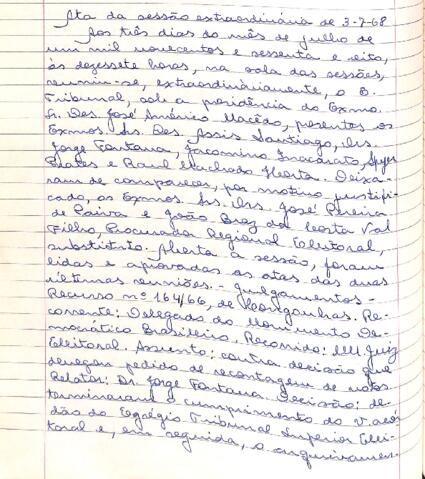 Ata da sessão extraordinária de 3-7-68
Aos três dias do mês de julho de
um mil novecentos e sessenta e oito,
às dezessete horas, na sala das sessões,
reuniu-se, extraordinàriamente, o E.
Tribunal, sob a presidência do Exmo.
Sr. Des. José Américo Macêdo, presentes os
Exmos. Srs. Des. Assis Santiago, Drs.
Jorge Fontana, Jacomino Inacarato,
Prates e Raul Machado Horta. Deixa-
ram de comparecer, por motivo justifi-
cado, os Exmos. Srs. Drs. José Pereira
de Paiva e João Braz da Costa Val
Filho, Procurador Regional Eleitoral,
substituto. Aberta a sessão, foram
lidas e aprovadas as atas das duas
últimas reuniões. - Julgamentos -
Recurso nº 164/66, de Congonhas. Re-
corrente: Delegado do Movimento De-
mocrático Brasileiro. Recorrido: MM Juiz
Eleitoral. Assunto: contra decisão que
denegou pedido de recontagem de votos
Relator: Dr. Jorge Fontana. Decisão: de-
terminaram o cumprimento do V. acór-
dão do Egrégio Tribunal Superior Elei-
toral e, em seguida, o arquivamen-